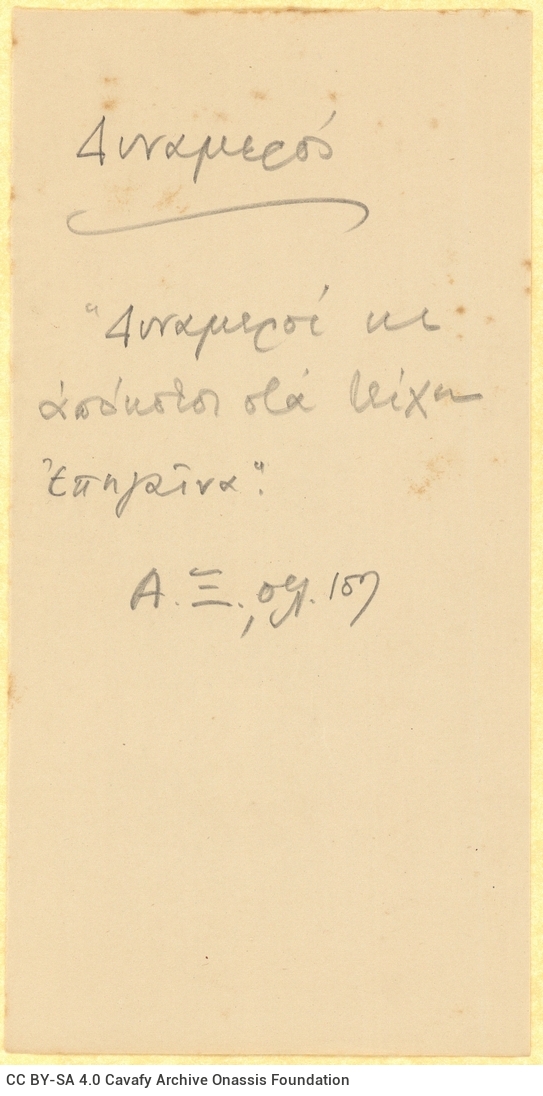 Δυναμερός
"Δυναμεροί κι
ἀπόκοτοι στά τείχη
Ἐπηγαῖνα".
Α. Ξ., σελ. 157
CC BY-SA 4.0 Cavafy Archive Onassis Foundation